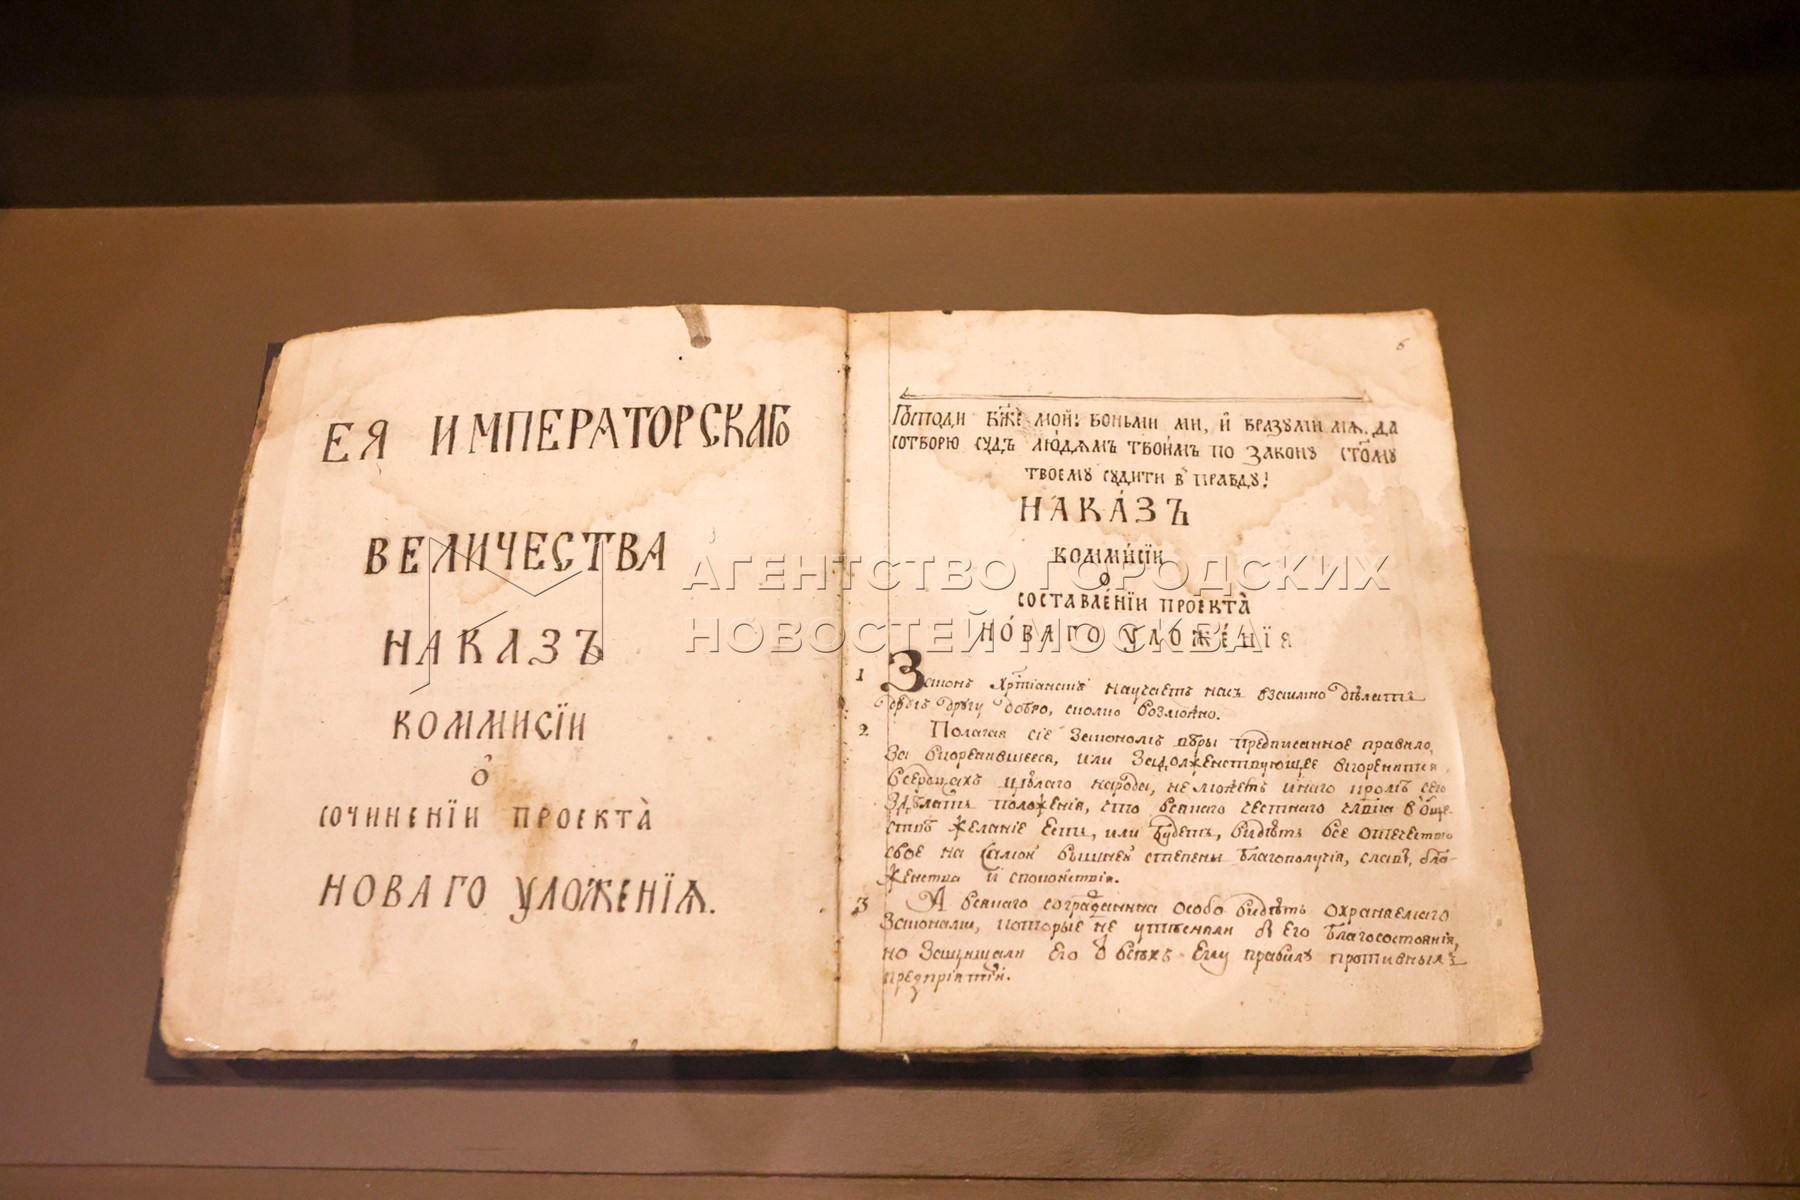 ЕЯ ИМПЕРАТОРСКАГО
ВЕЛИЧЕСТВА
НАКАЗЪ
КОММИСІИ
О
СОЧИНЕНІИ ПРОЕКТА
НОВАГО УЛОЖЕНІЯ.
6
Господи Бже мой! воньми ми, и вразуми мя. да
сотворю судъ людямъ твоимъ по закону стому
твоему судити в правду!
НАКАЗЪ
КОММИСІИ
О
СОСТАВЛЕНІИ ПРОЕКТА
НОВАГО УЛОЖЕНІЯ
1 Законъ Хртіанскій научаетъ насъ взаимно дѣлати
другъ другу добро, сколко возможно.
2 Полагая сіе закономъ вѣры предписанное правило,
за вкоренившееся, или задолженствующее вкоренится
всердцахъ цѣлаго народа, не можемъ инаго кромѣ сего
здѣлать положенія, что всякаго честнаго члвка в обще-
ствѣ желаніе есть, или будетъ, видѣть все отечество
свое на самой вышней степени благополучія, славы, бла-
женства и спокойствія.
3 А всякаго согражданина особо видѣть охраняемаго
Законами, которые не утѣсняли б его благосостоянія,
но защищали его о всѣхъ Ему правилу противныхъ
предпріятій.
АГЕНТСТВО ГОРОДСКИХ
НОВОСТЕЙ МОСКВА